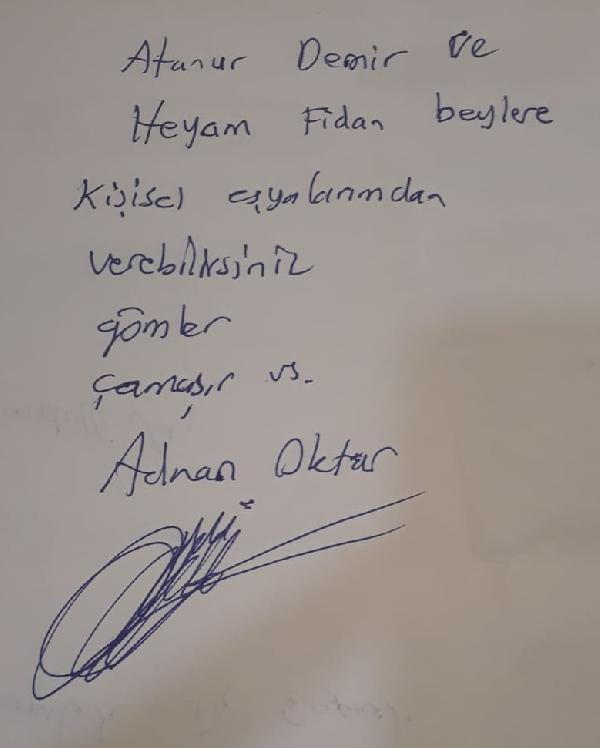 Atanur Demir ve
Heyam Fidan beylere
Kişisel eşyalarımdan
verebilirsiniz
gömler
çamaşır vs.
Adnan Oktar